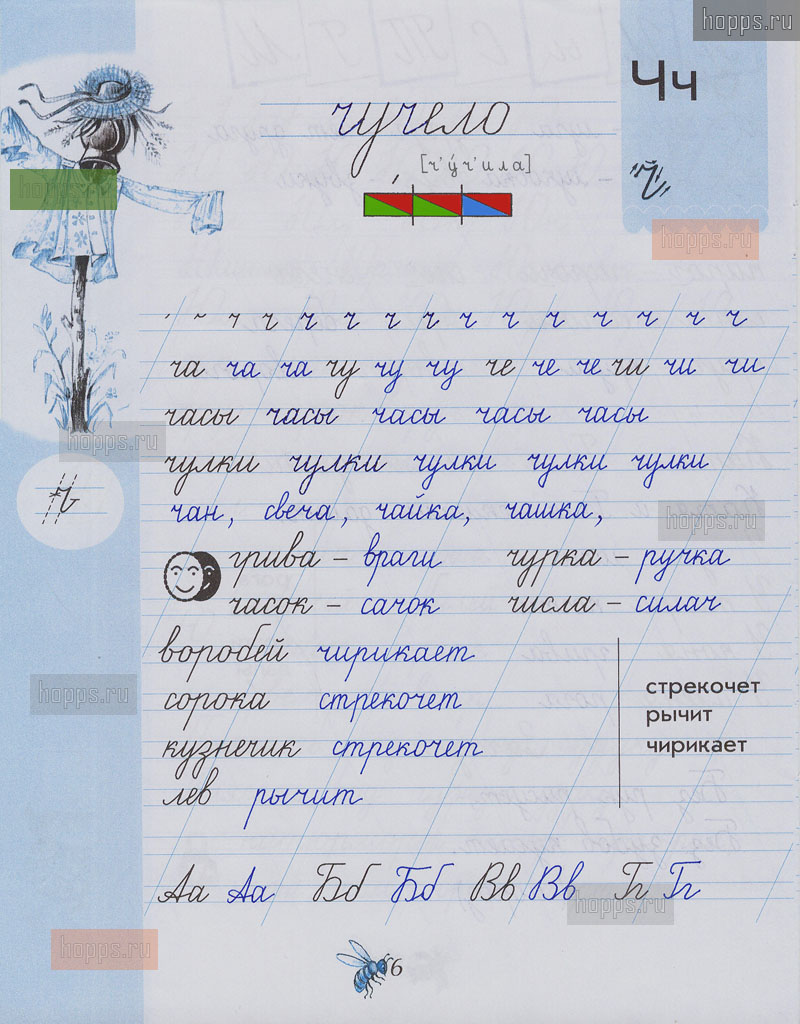 hopps.ru
Чч
чучело
[ч'у́ч'ила]
hopps.ru
hopps.ru
ч ч ч ч ч ч ч ч ч ч ч ч
ча ча ча чу чу чу че че че чи чи чи
часы часы часы часы часы
hopps.ru
чулки чулки чулки чулки чулки
ч
чан, свеча, чайка, чашка,
hopps.ru
грива – враги чурка – ручка
часок – сачок числа – силач
воробей чирикает
hopps.ru
сорока стрекочет
стрекочет
рычит
чирикает
кузнечик стрекочет
лев рычит
Аа Аа Бб Бб Вв Вв Гг Гг
hopps.ru
hopps.ru
6